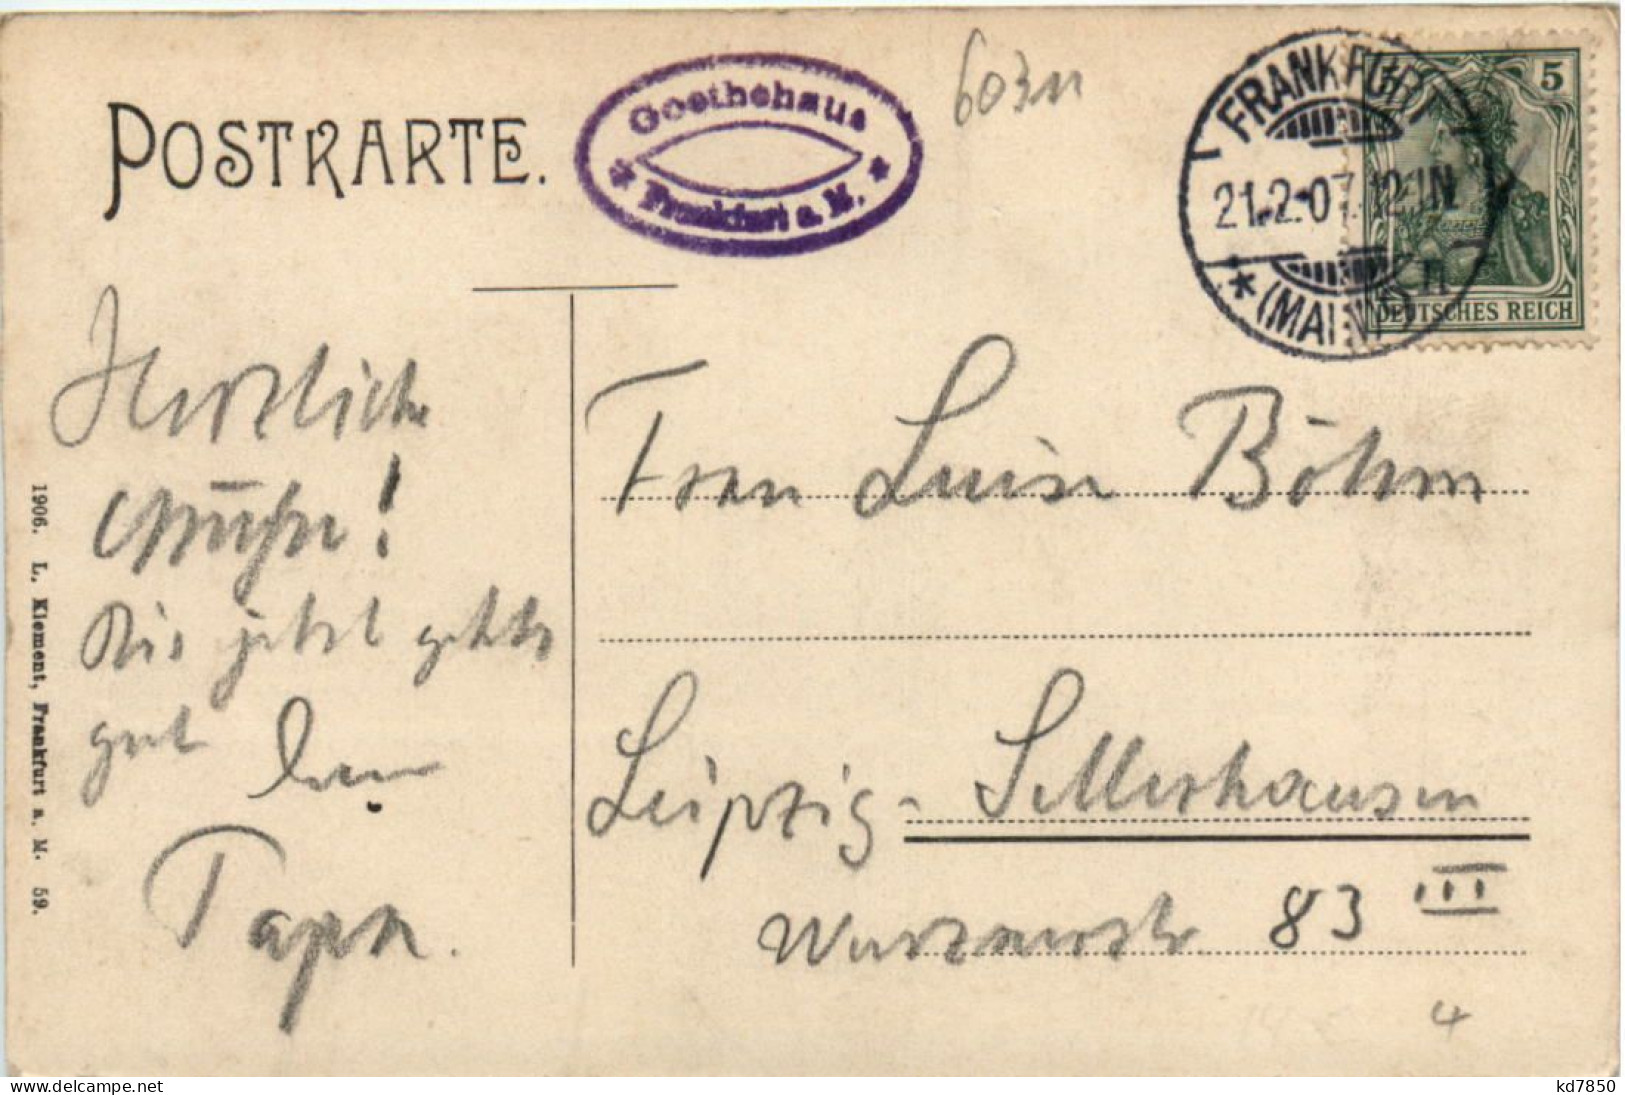 POSTKARTE.
Goethehaus
Frankfurt a. M.
603m
FRANKFURT
21.2.07. 12-1N
* (MAIN) 1 n
5
DEUTSCHES REICH
Herzliche
Grüße!
Bis jetzt geht's
gut
Papa.
Frau Luise Böhm
Leipzig-Sellerhausen
Wurznerstr 83 III
4
1906. L. Klement, Frankfurt a. M. 59.
www.delcampe.net
kd7850